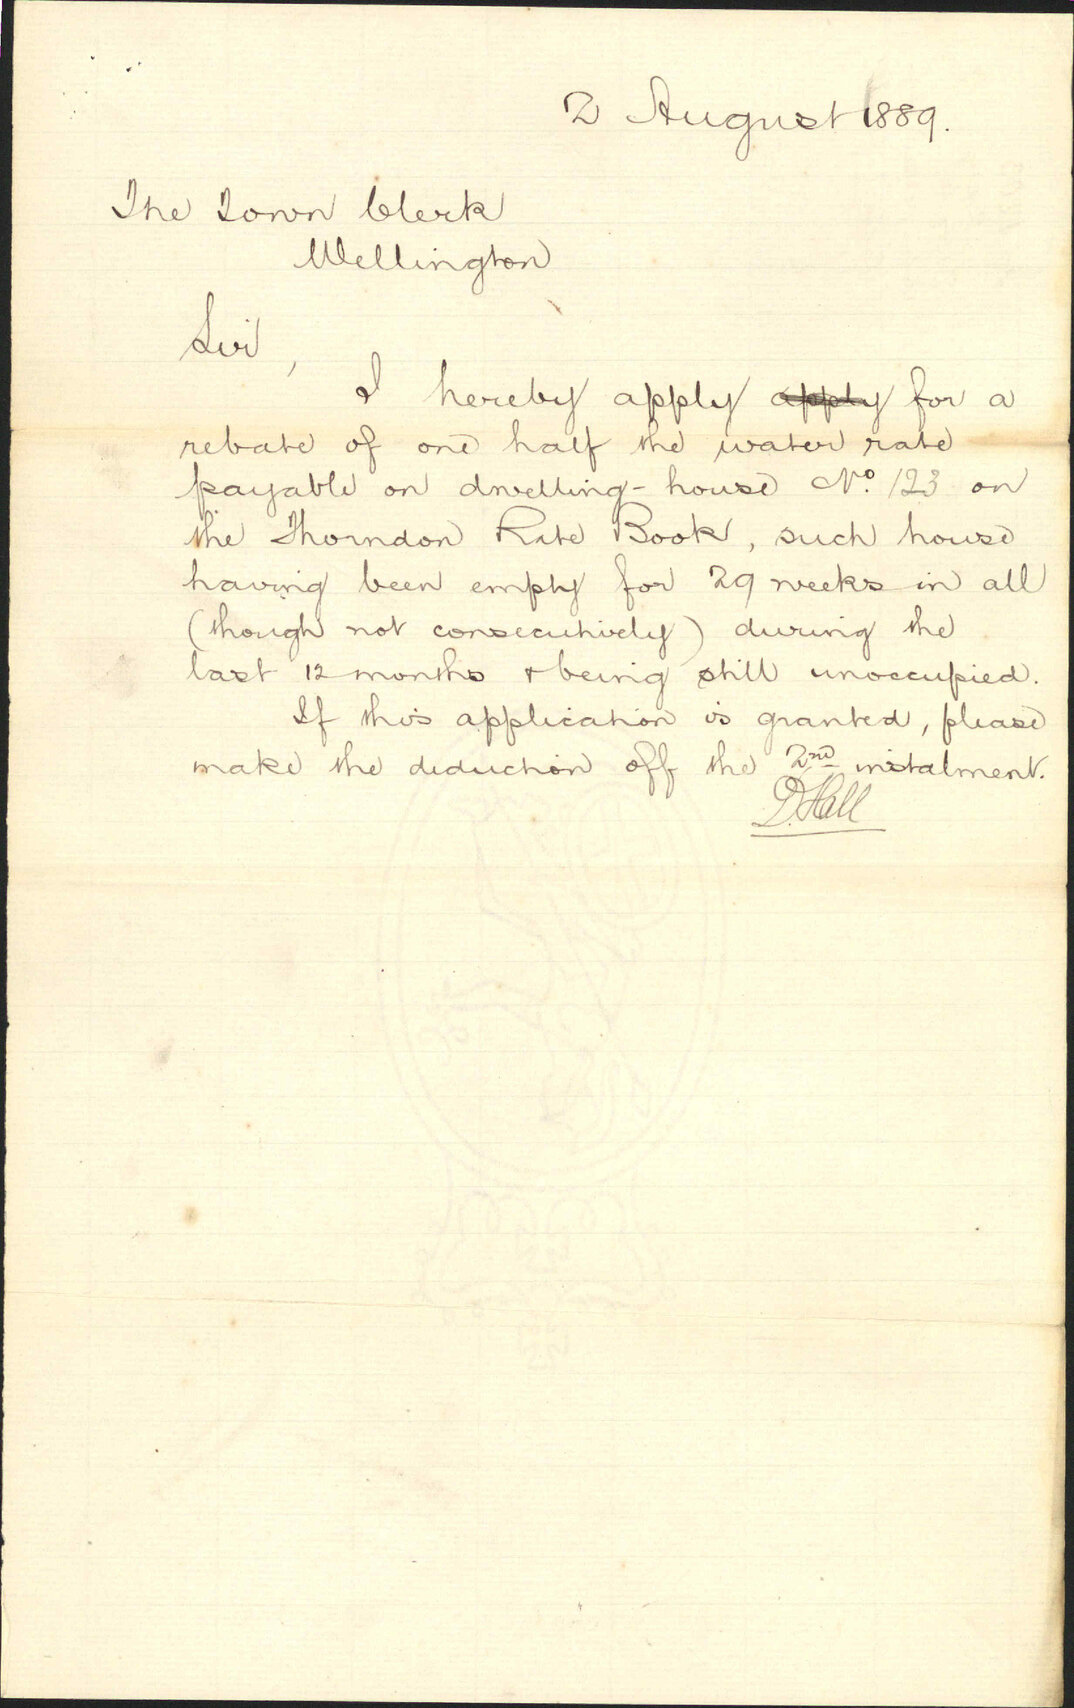 2 August 1889.
The Town Clerk
Wellington
Sir,
I hereby apply apply for a
rebate of one half the water rate
payable on dwelling-house No. 123 on
the Thorndon Rate Book, such house
having been empty for 29 weeks in all
(though not consecutively) during the
last 12 months & being still unoccupied.
If this application is granted, please
make the deduction off the 2nd instalment.
D. Hall